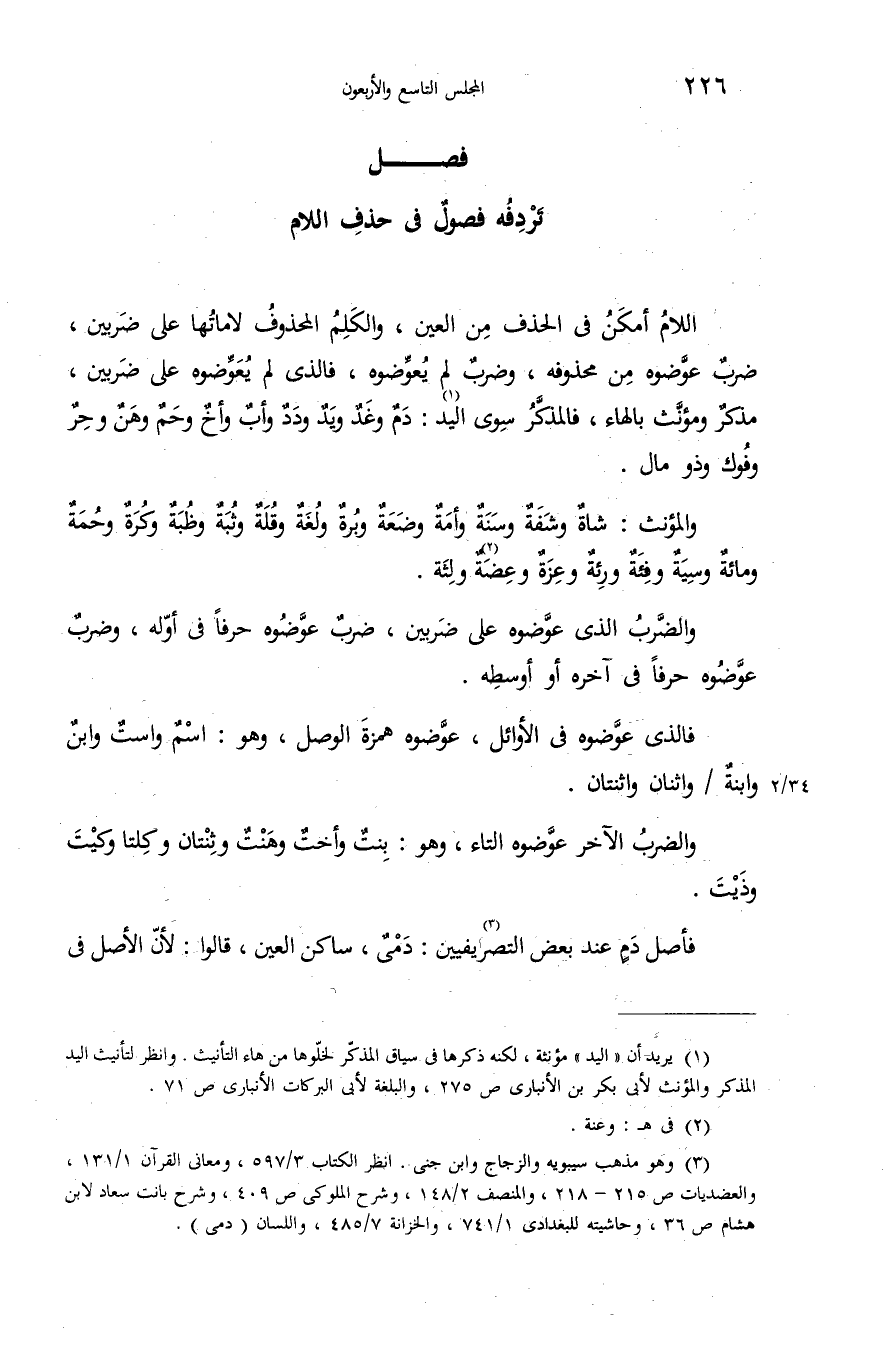 ٢٢٦ المجلس التاسع والأربعون
فصـــــــل
تَرْدِفُه فصولٌ فى حذفِ اللام
اللامُ أمكَنُ فى الحذف مِن العين ، والكَلِمُ المحذوفُ لاماتُها على ضَربين ،
ضربٌ عوَّضوه مِن محذوفه ، وضربٌ لم يُعوِّضوه ، فالذى لم يُعَوِّضوه على ضَربين ،
مذكرٌ ومؤنَّث بالهاء ، فالمذكَّرُ سِوى اليد(١) : دَمٌ وغَدٌ ويَدٌ ودَدٌ وأبٌ وأخٌ وحَمٌ وهَنٌ وحِرٌ
وفُوك وذو مال .
والمؤنث : شاةٌ وشَفَةٌ وسَنَةٌ وأمَةٌ وضَعَةٌ وبُرةٌ ولُغَةٌ وقُلَةٌ وثُبَةٌ وظُبَةٌ وكُرَةٌ وحُمَةٌ
ومائةٌ وسِيَةٌ وفِئَةٌ ورِئةٌ وعِزَةٌ وعِضَةٌ(٢) ولِثَة .
والضَّربُ الذى عوَّضوه على ضَربين ، ضربٌ عوَّضُوه حرفاً فى أوّله ، وضربٌ
عوَّضُوه حرفاً فى آخره أو أوسطِه .
فالذى عوَّضوه فى الأوائل ، عوَّضوه همزةَ الوصل ، وهو : اسْمٌ واستٌ وابنٌ
٢/٣٤ وابنةٌ / واثنان واثنتان .
والضربُ الآخر عوَّضوه التاء ، وهو : بِنتٌ وأختٌ وهَنْتٌ وثِنْتان وكِلتا وكَيْتَ
وذَيْتَ .
فأصل دَمٍ عند بعض التصريفيين(٣) : دَمْىٌ ، ساكن العين ، قالوا : لأنّ الأصل فى
(١) يريد أن « اليد » مؤنثة ، لكنه ذكرها فى سياق المذكّر لخلّوها من هاء التأنيث . وانظر لتأنيث اليد
المذكر والمؤنث لأبى بكر بن الأنبارى ص ٢٧٥ ، والبلغة لأبى البركات الأنبارى ص ٧١ .
(٢) فى هـ : وعنة .
(٣) وهو مذهب سيبويه والزجاج وابن جنى . انظر الكتاب ٥٩٧/٣ ، ومعانى القرآن ١٣١/١ ،
والعضديات ص ٢١٥ – ٢١٨ ، والمنصف ١٤٨/٢ ، وشرح الملوكى ص ٤٠٩ ، وشرح بانت سعاد لابن
هشام ص ٣٦ ، وحاشيته للبغدادى ٧٤١/١ ، والخزانة ٤٨٥/٧ ، واللسان ( دمى ) .